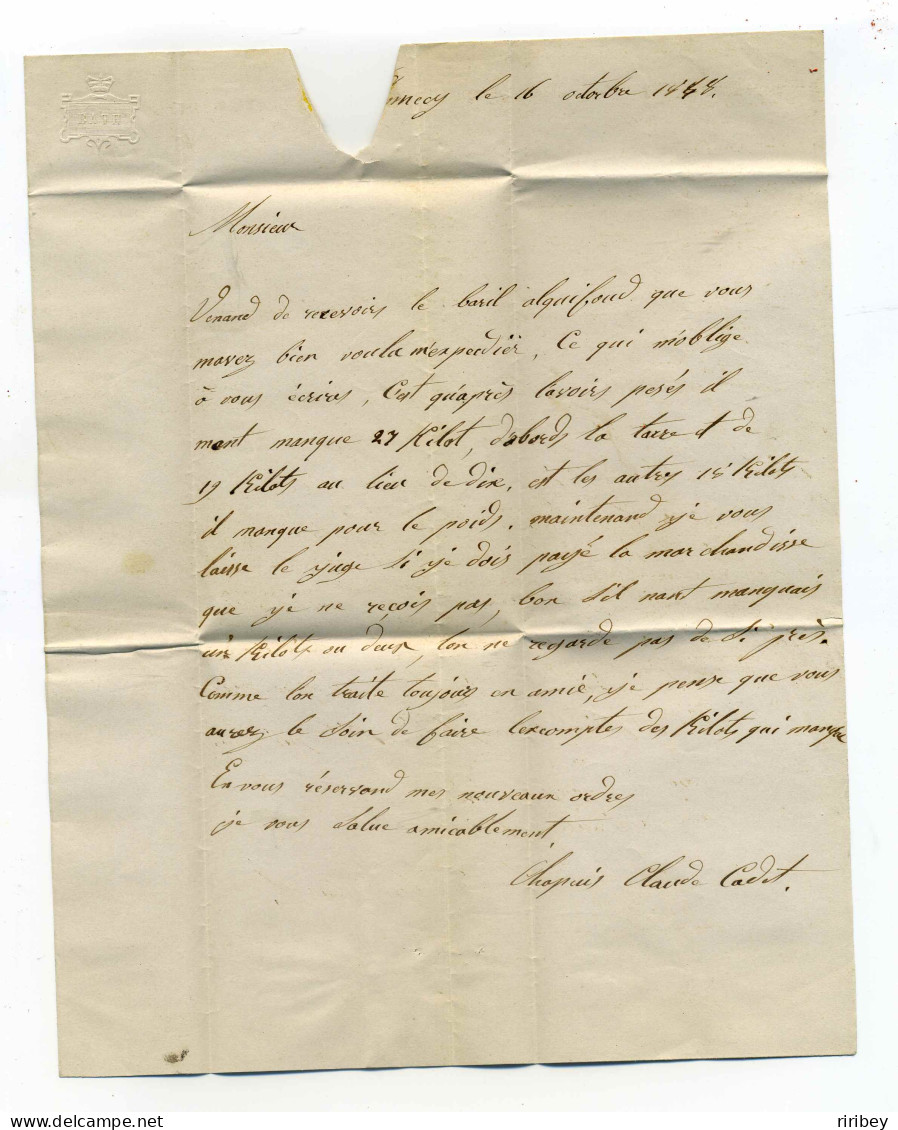 BATH
nnecy le 16 octobre 1858.
Monsieur
Venand de recevoirs le baril alquifoud que vous
mavez bien voulu m'expediër, Ce qui m'oblige
à vous écrires, C'est qu'après l'avoirs pesés il
mont manque 27 Kilot, d'abords la tarre et de
19 Kilots au lieu de dix, est les autres 18 Kilots
il manque pour le poids, maintenand je vous
laisse le juge Si je dois payé la marchandisse
que je ne reçois pas, bon S'il nant manquais
un Kilots ou deux, l'on ne regarde pas de Si près.
Comme l'on traite toujours en amie, je pense que vous
aurez le Soin de faire l'excomptes des Kilots qui manque
En vous réservond mes nouveaux ordres
je vous Salue amicablement
Chapuis Claude Cadet.
riribey